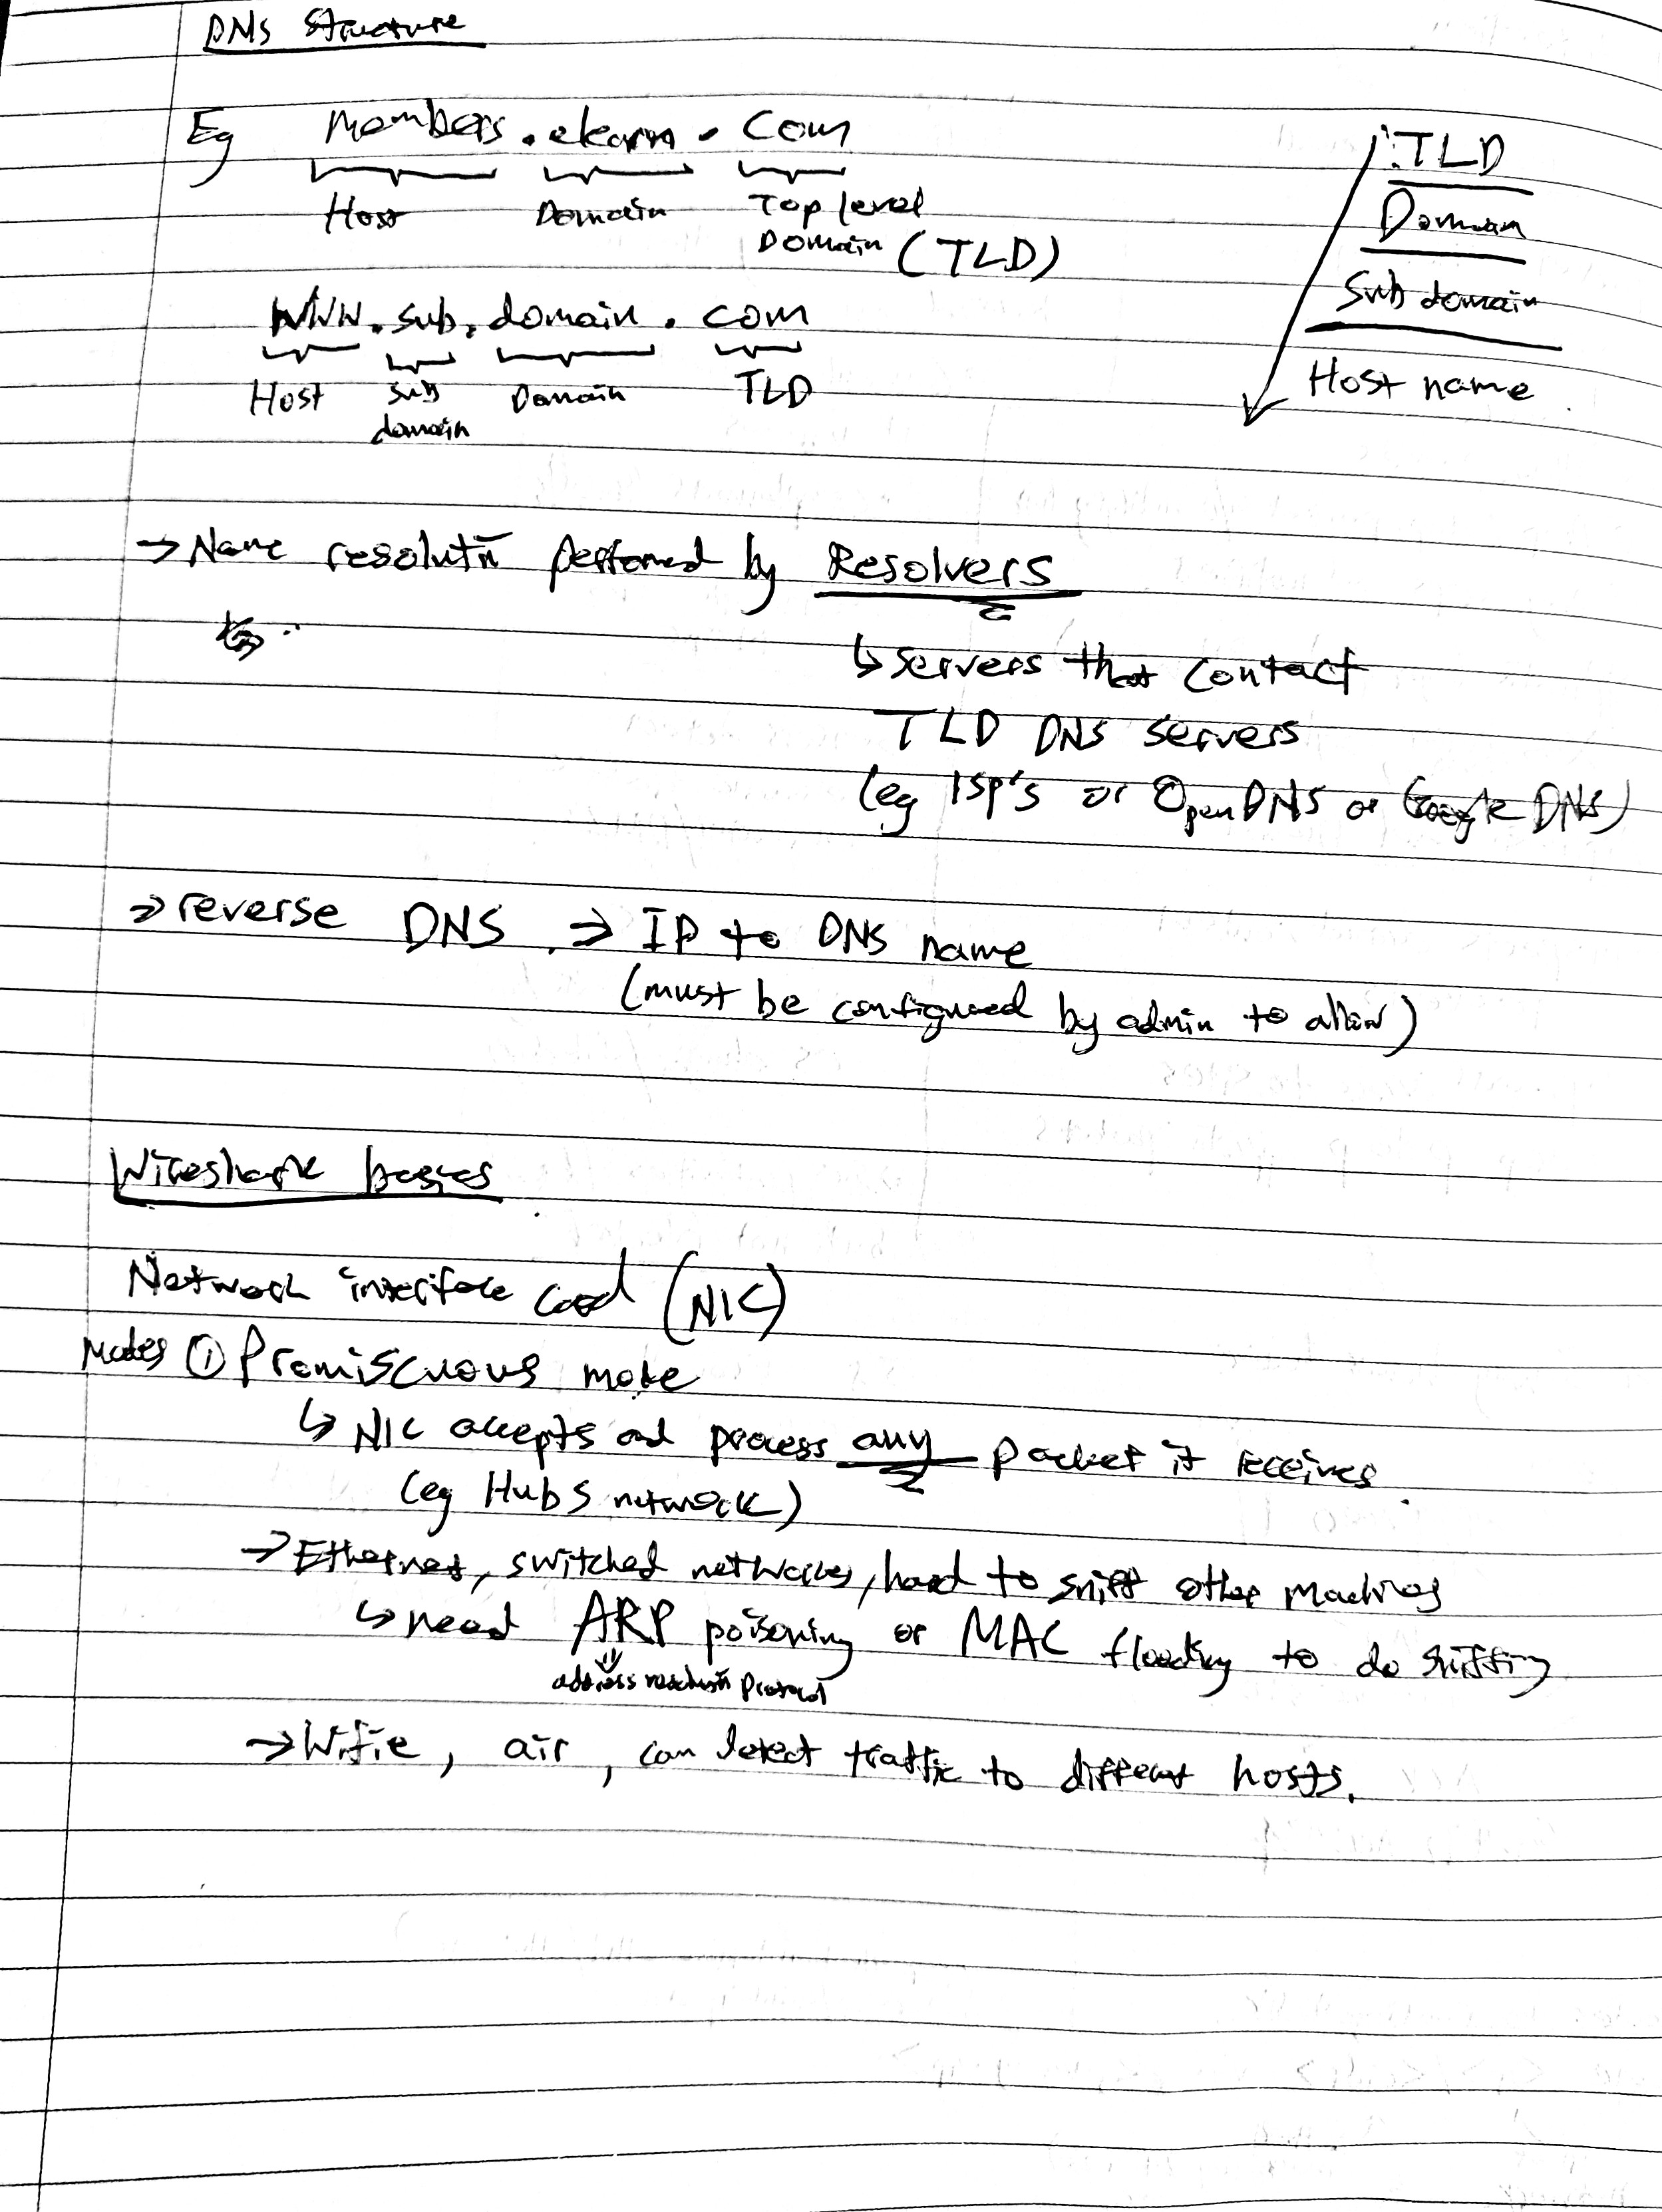 DNS Structure
Eg members.elearn.com
Host Domain Top level
Domain (TLD)
www.sub.domain.com
Host Sub Domain TLD
domain
TLD
Domain
Sub domain
Host name
→ Name resolutn performed by Resolvers
↳ servers that contact
TLD DNS servers
(eg ISP's or OpenDNS or Google DNS)
→ reverse DNS → IP to DNS name
(must be configured by admin to allow)
Wireshark basics
Network interface card (NIC)
Modes ① Promiscuous mode
↳ NIC accepts and process any packet it receives.
(eg Hubs network)
→ Ethernet, switched networks, hard to sniff other machines
↳ need ARP poisoning or MAC flooding to do sniffing
address resolutn Protocol
→ Wifie, air, can detect traffic to different hosts.